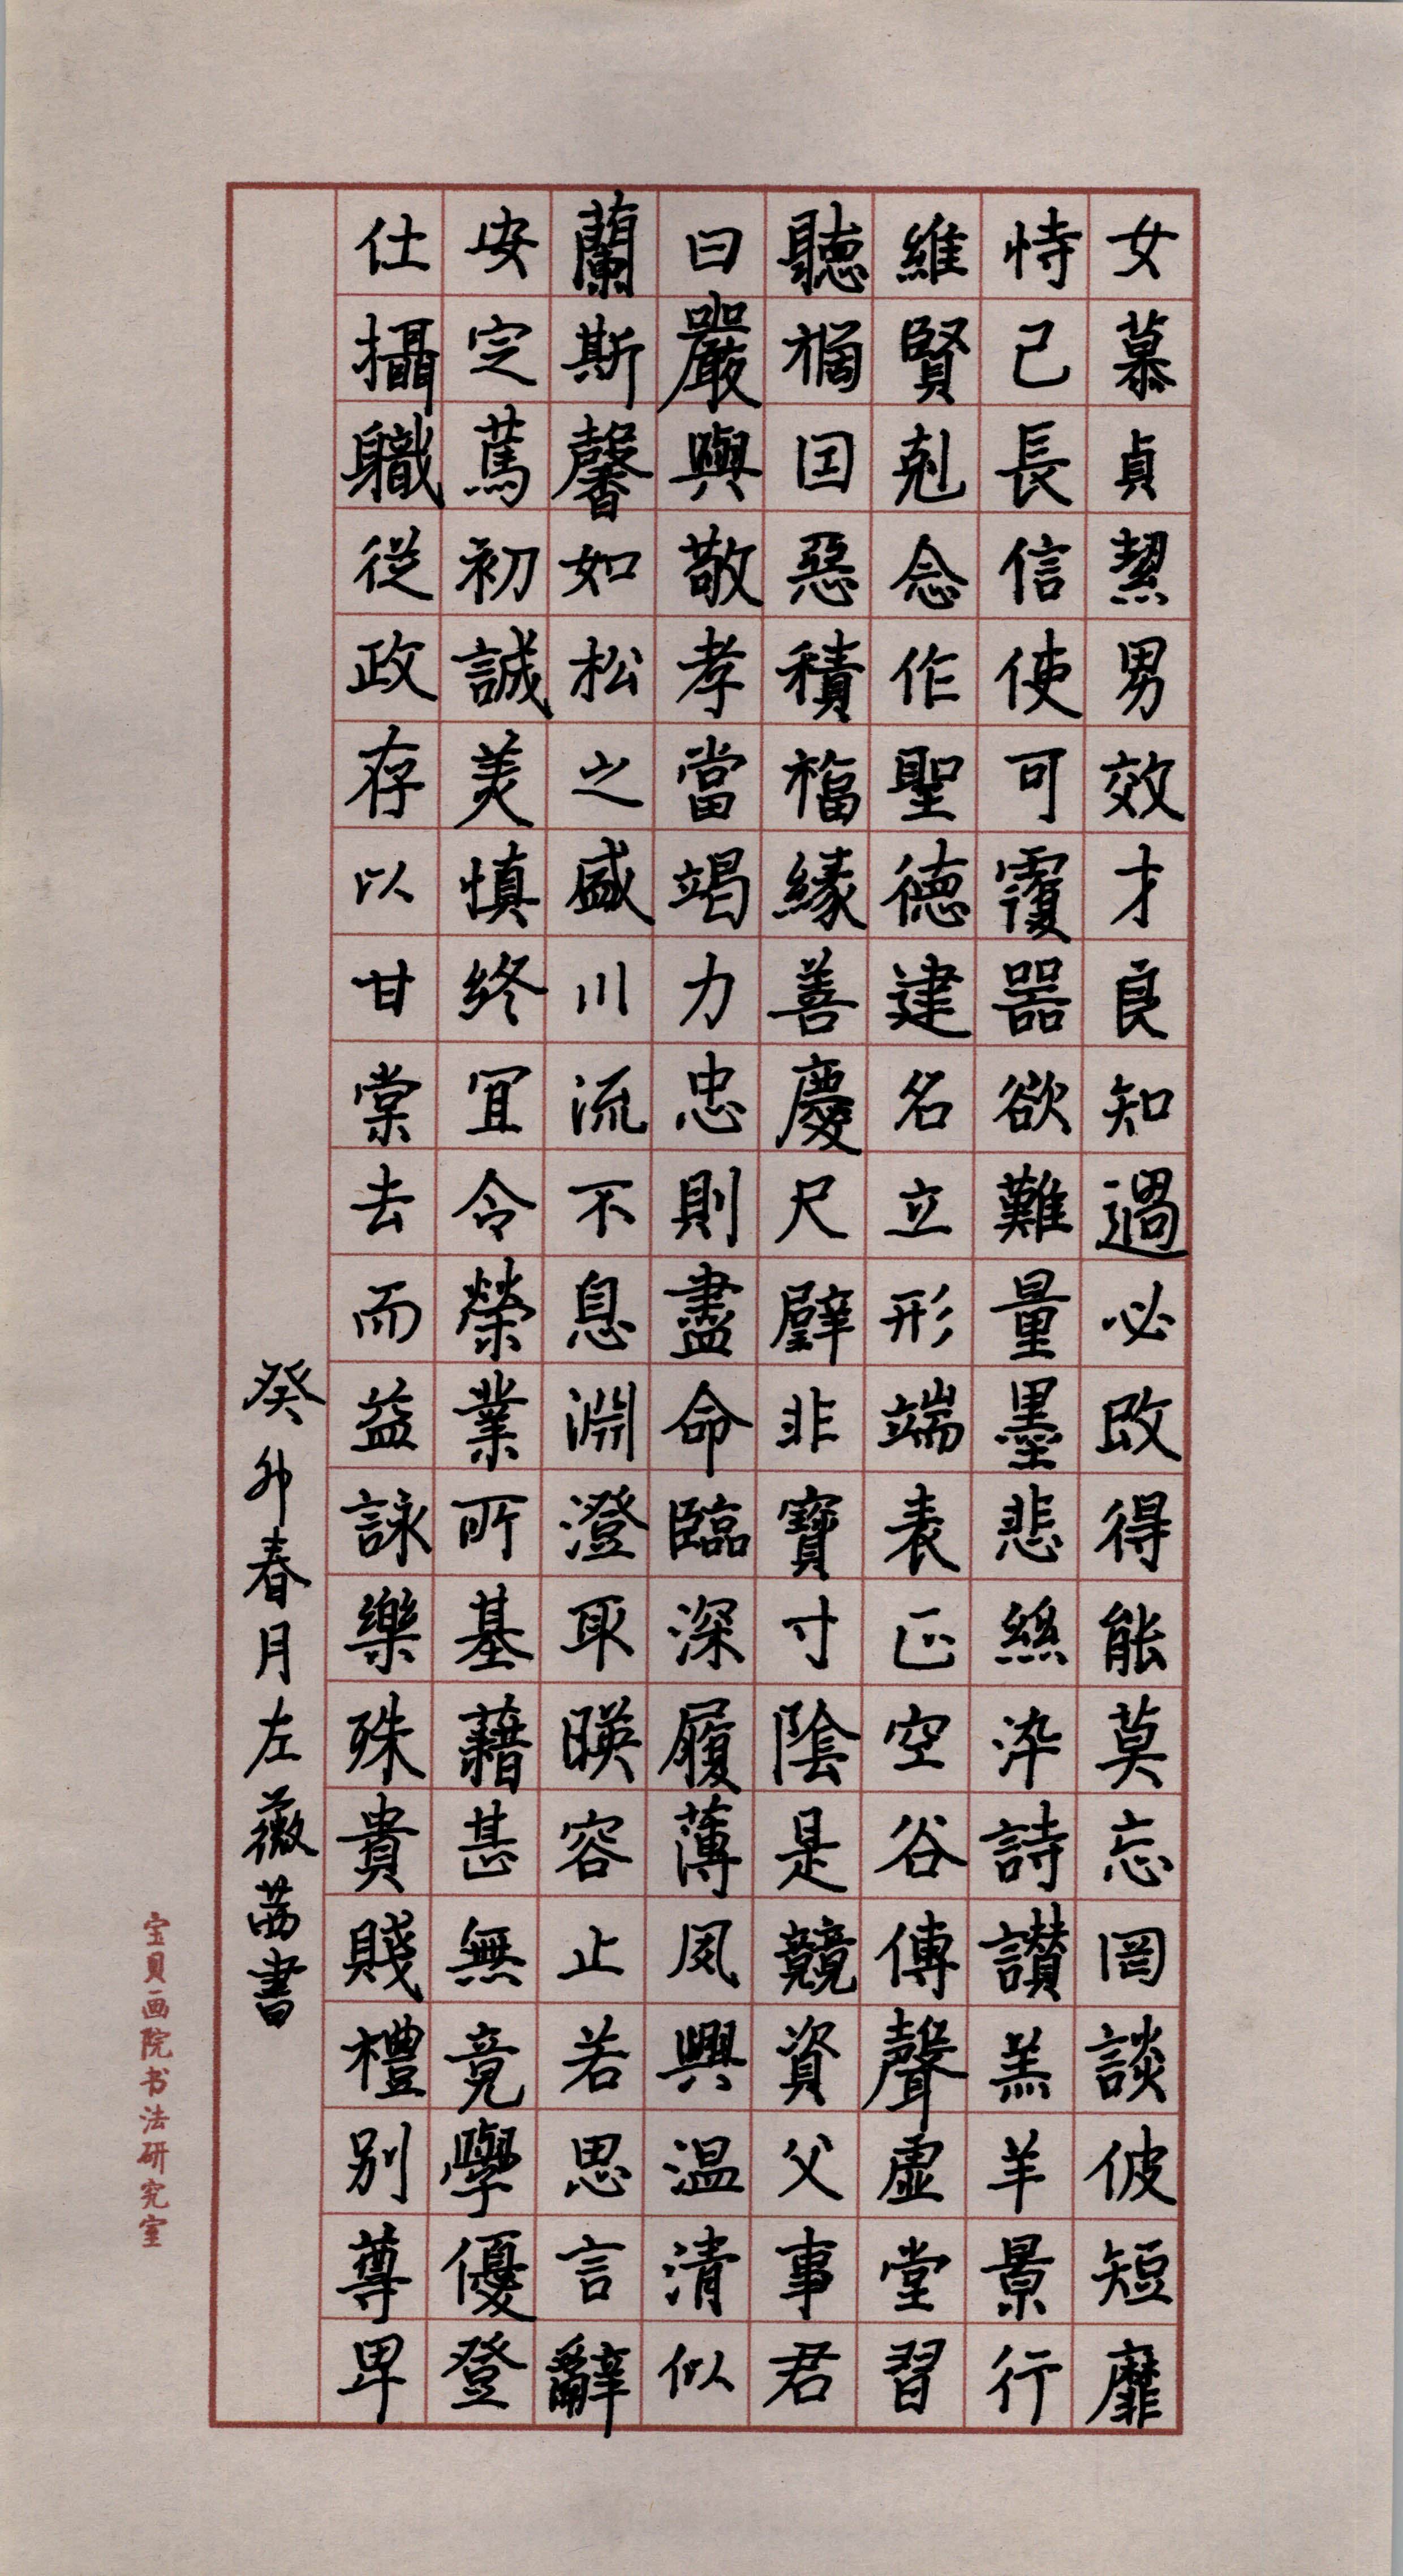 女慕貞絜男效才良知過必改得能莫忘罔談彼短靡
恃己長信使可覆器欲難量墨悲絲染詩讃羔羊景行
維賢剋念作聖德建名立形端表正空谷傳聲虛堂習
聽禍因惡積福緣善慶尺璧非寶寸陰是競資父事君
曰嚴與敬孝當竭力忠則盡命臨深履薄夙興温清似
蘭斯馨如松之盛川流不息淵澄取暎容止若思言辭
安定篤初誠美慎終宜令榮業所基藉甚無竟學優登
仕攝職從政存以甘棠去而益詠樂殊貴賤禮別尊卑
癸卯春月左薇茜書
宝贝画院书法研究室